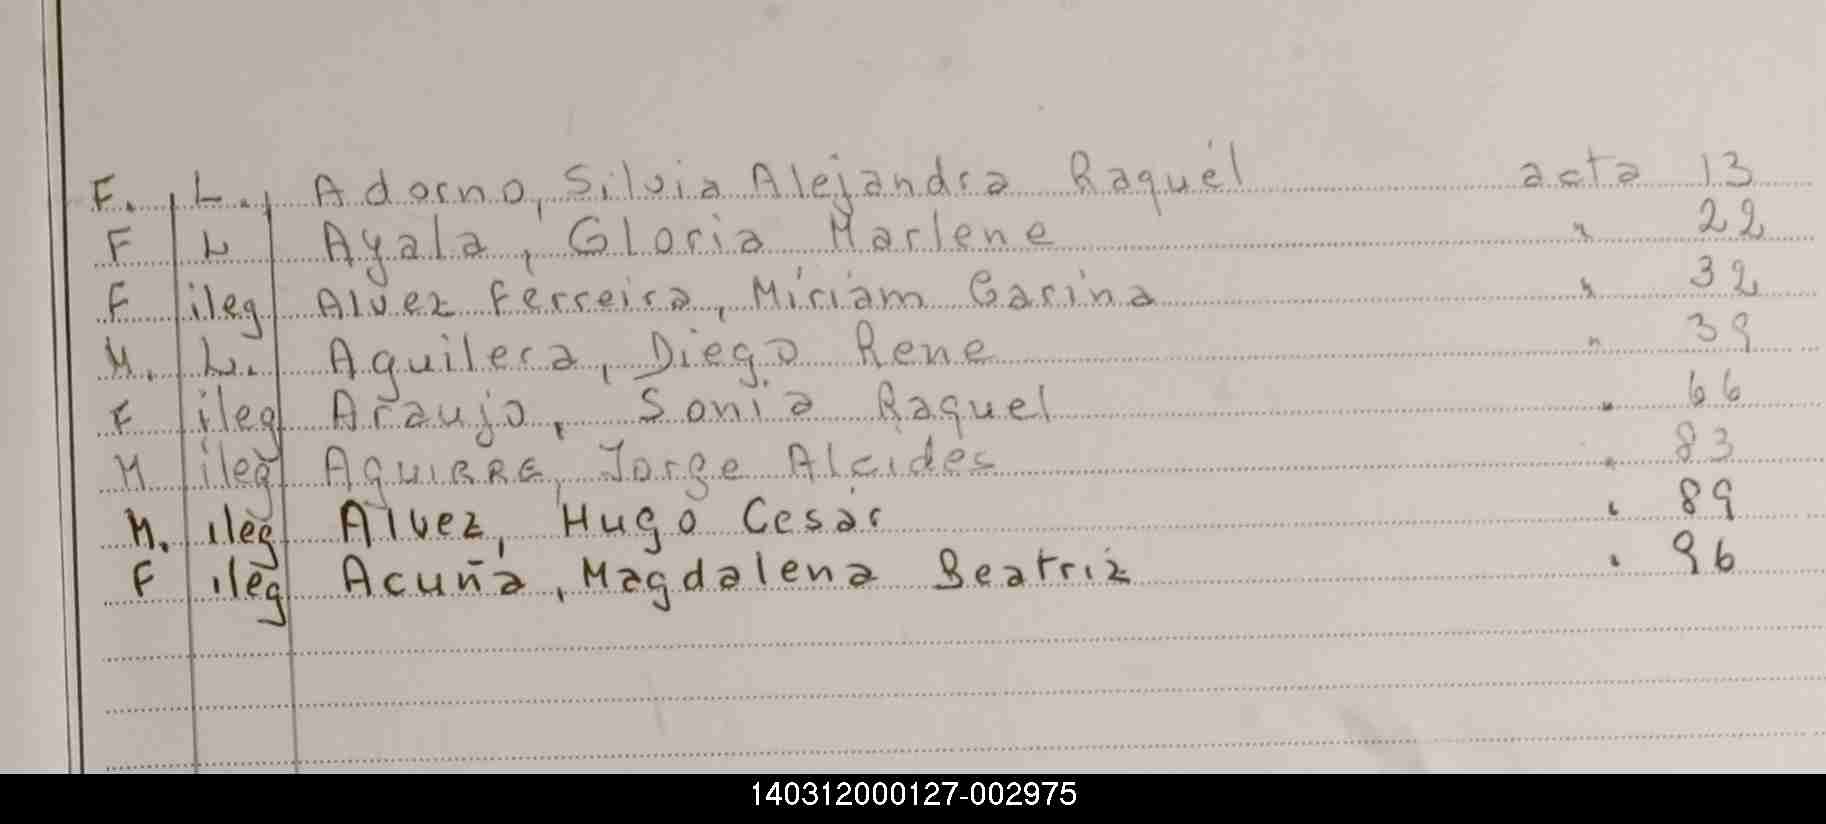 F. L. Adorno, Silvia Alejandra Raquel acta 13
F L Ayala, Gloria Marlene " 22
F ileg Alvez Ferreira, Miriam Carina " 32
M. L. Aguilera, Diego Rene " 39
F ileg Araujo, Sonia Raquel " 66
M ileg AguiRRE, Jorge Alcides " 83
M. ileg Alvez, Hugo Cesar " 89
F ileg Acuña, Magdalena Beatriz " 96
140312000127-002975